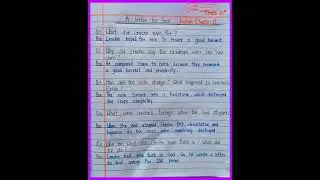 Class-X
A letter to God English Chapter-1
Q1 What did Lencho hope for?
Ans Lencho hoped for rain to ensure a good harvest
Q2 Why did Lencho say the raindrops were like new coins?
Ans He compared them to coins because they promised a good harvest and prosperity.
Q3 How did the rain change? What happened to Lencho's fields?
Ans The rain turned into a hailstorm, which destroyed the crops completely.
Q4 What were Lencho's feelings when the hail stopped
Ans When the hail stopped, Lencho felt devastated and
the crops were completely destroyed
Q5 Who did Lencho have faith in? What did he do?
Ans Lencho had deep faith in God. So, he wrote a letter to God asking for 100 pesos.